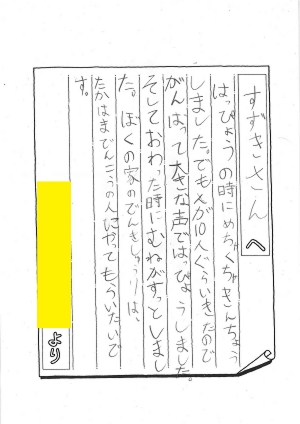 すずきさんへ
はっぴょうの時にめちゃくちゃきんちょう
しました。でも人が10人ぐらいきたので
がんばって大きな声ではっぴょうしました。
そしておわった時にむねがすっとしまし
た。ぼくの家のでんきしゅうりは、
たかはまでんこうの人にやってもらいたいで
す。
より